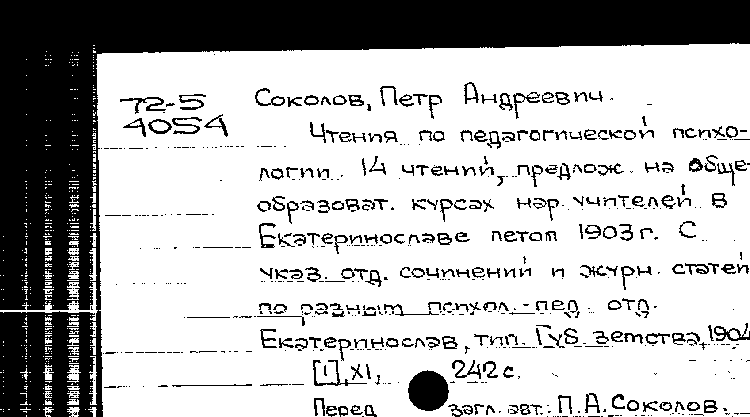 72-5 Соколов, Петр Андреевич.
4054 Чтения по педагогической психо-
логии. 14 чтений, предлож. на обще-
образоват. курсах нар. учителей в
Екатеринославе летом 1903 г. С
указ. отд. сочинений и журн. статей
по разным психол.-пед. отд.
Екатеринослав, тип. Губ. земства, 1904
[1], XI, 242 с.
Перед загл. авт.: П.А. Соколов.